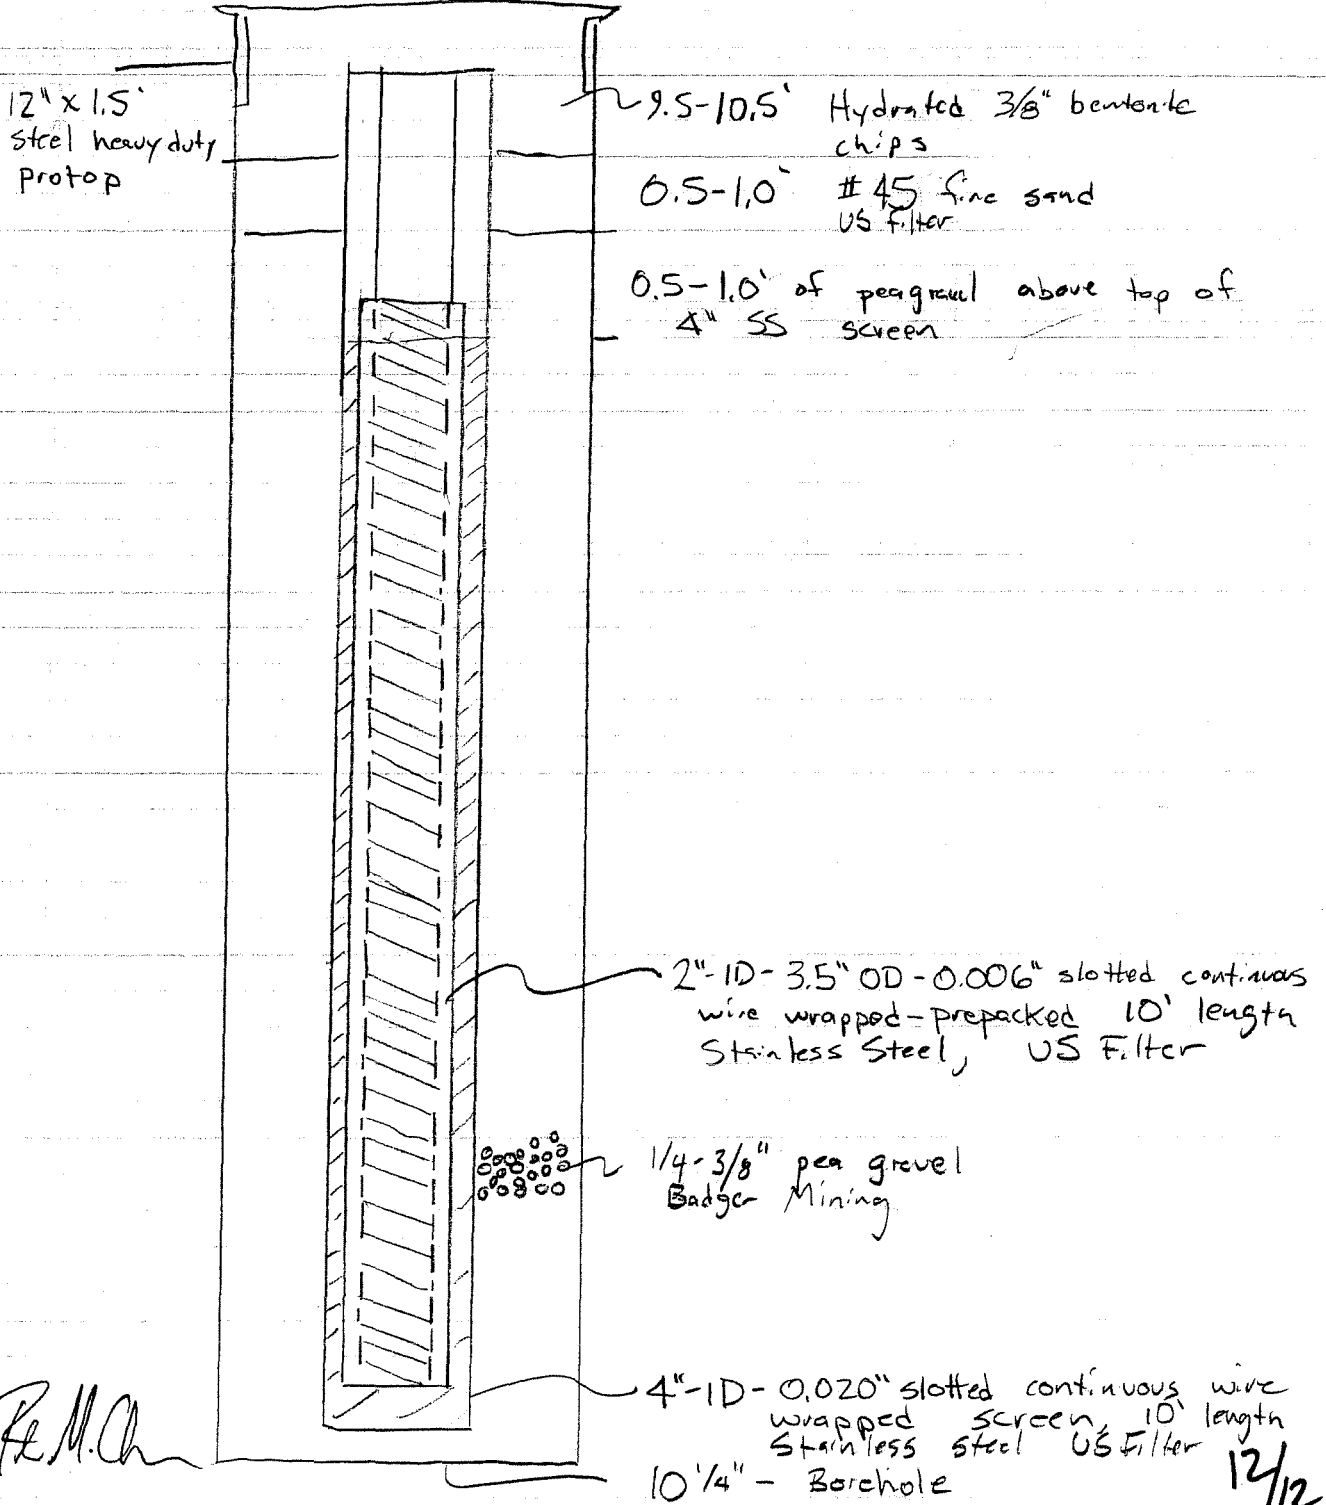 12" x 1.5'
steel heavy duty
protop
9.5-10.5' Hydrated 3/8" bentonite
chips
0.5-1.0' #45 fine sand
US Filter
0.5-1.0' of peagravel above top of
4" SS screen
2"-ID-3.5" OD-0.006" slotted continuous
wire wrapped-prepacked 10' length
Stainless Steel, US Filter
1/4-3/8" pea gravel
Badger Mining
4"-ID-0.020" slotted continuous wire
wrapped screen, 10' length
Stainless steel US Filter
10 1/4" - Borehole
12/12